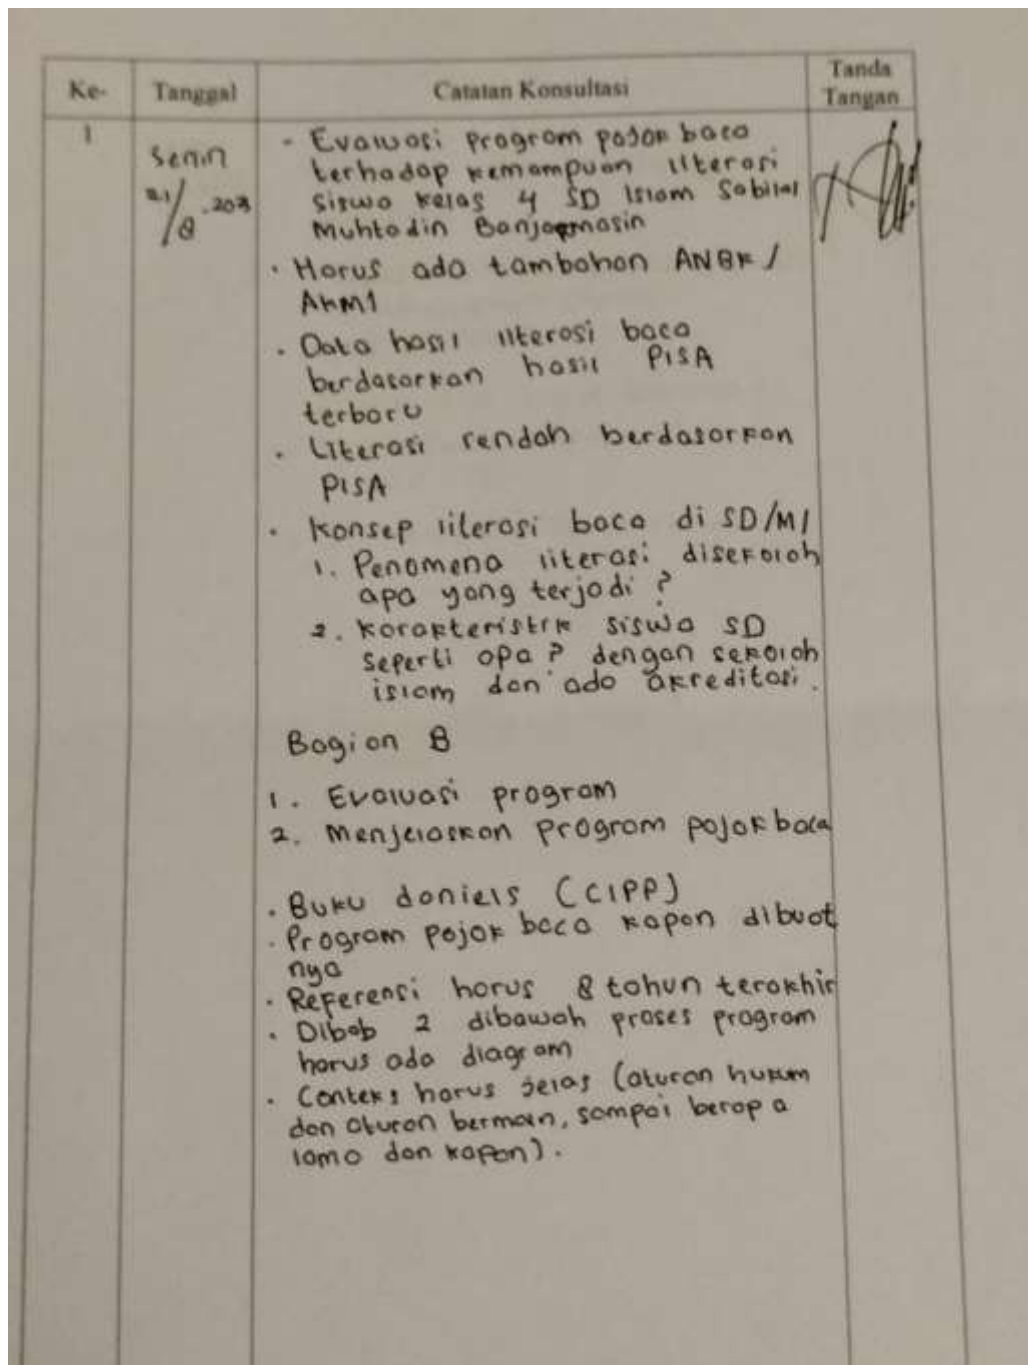 Ke-
Tanggal
Catatan Konsultasi
Tanda
Tangan
1
Senin
21/8
- Evaluasi program pojok baca
terhadap kemampuan literasi
siswa kelas 4 SD Islam Sabilal
Muhtadin Banjarmasin
• Harus ada tambahan ANBK /
AKMI
• Data hasil literasi baca
berdasarkan hasil PISA
terbaru
• Literasi rendah berdasarkan
PISA
• Konsep literasi baca di SD/MI
1. Penomena literasi disekolah
apa yang terjadi ?
2. Karakteristik siswa SD
seperti apa ? dengan sekolah
islam dan ado akreditasi.
Bagian B
1. Evaluasi program
2. Menjelaskan program pojok baca
• Buku daniels (CIPP)
• Program pojok baca kapan dibuat
nya
• Referensi harus 8 tahun terakhir
• Dibab 2 dibawah proses program
harus ada diagram
• Conteks harus jelas (aturan hukum
dan aturan bermain, sampai berapa
lama dan kapan).